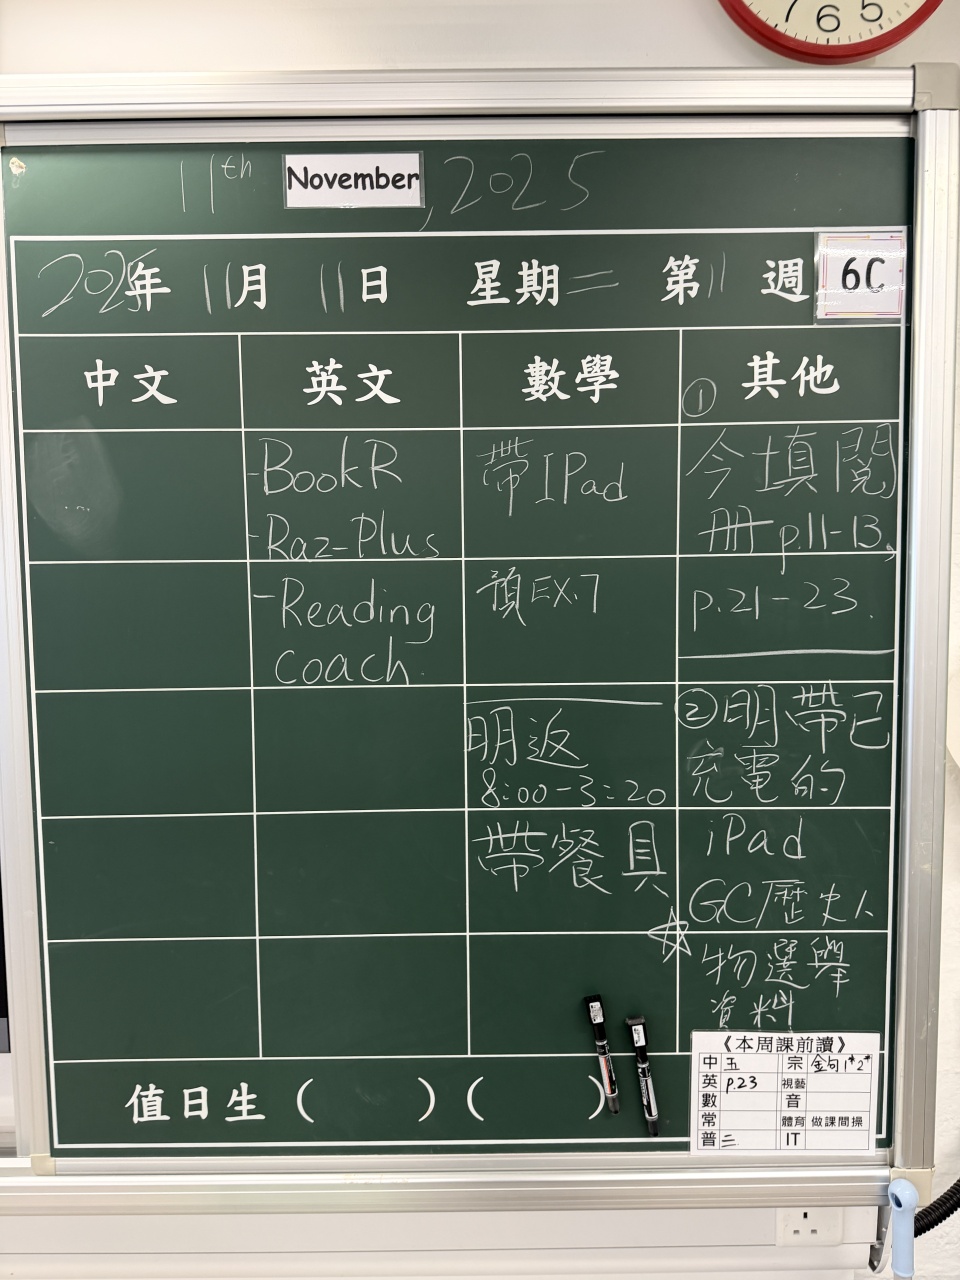 7 6 5
11th November, 2025
2025年 11月 11日 星期二 第11週 6C
中文 英文 數學 ① 其他
-BookR
-Raz-Plus
-Reading
coach.
帶IPad
預EX.7
明返
8:00-3:20
帶餐具
今填閱
冊p.11-13,
p.21-23.
②明帶已
充電的
iPad
GC歷史人
物選舉
資料
值日生( )( )
《本周課前讀》
中 五 宗 金句1*2*
英 p.23 視藝
數 音
常 體育 做課間操
普 三 IT